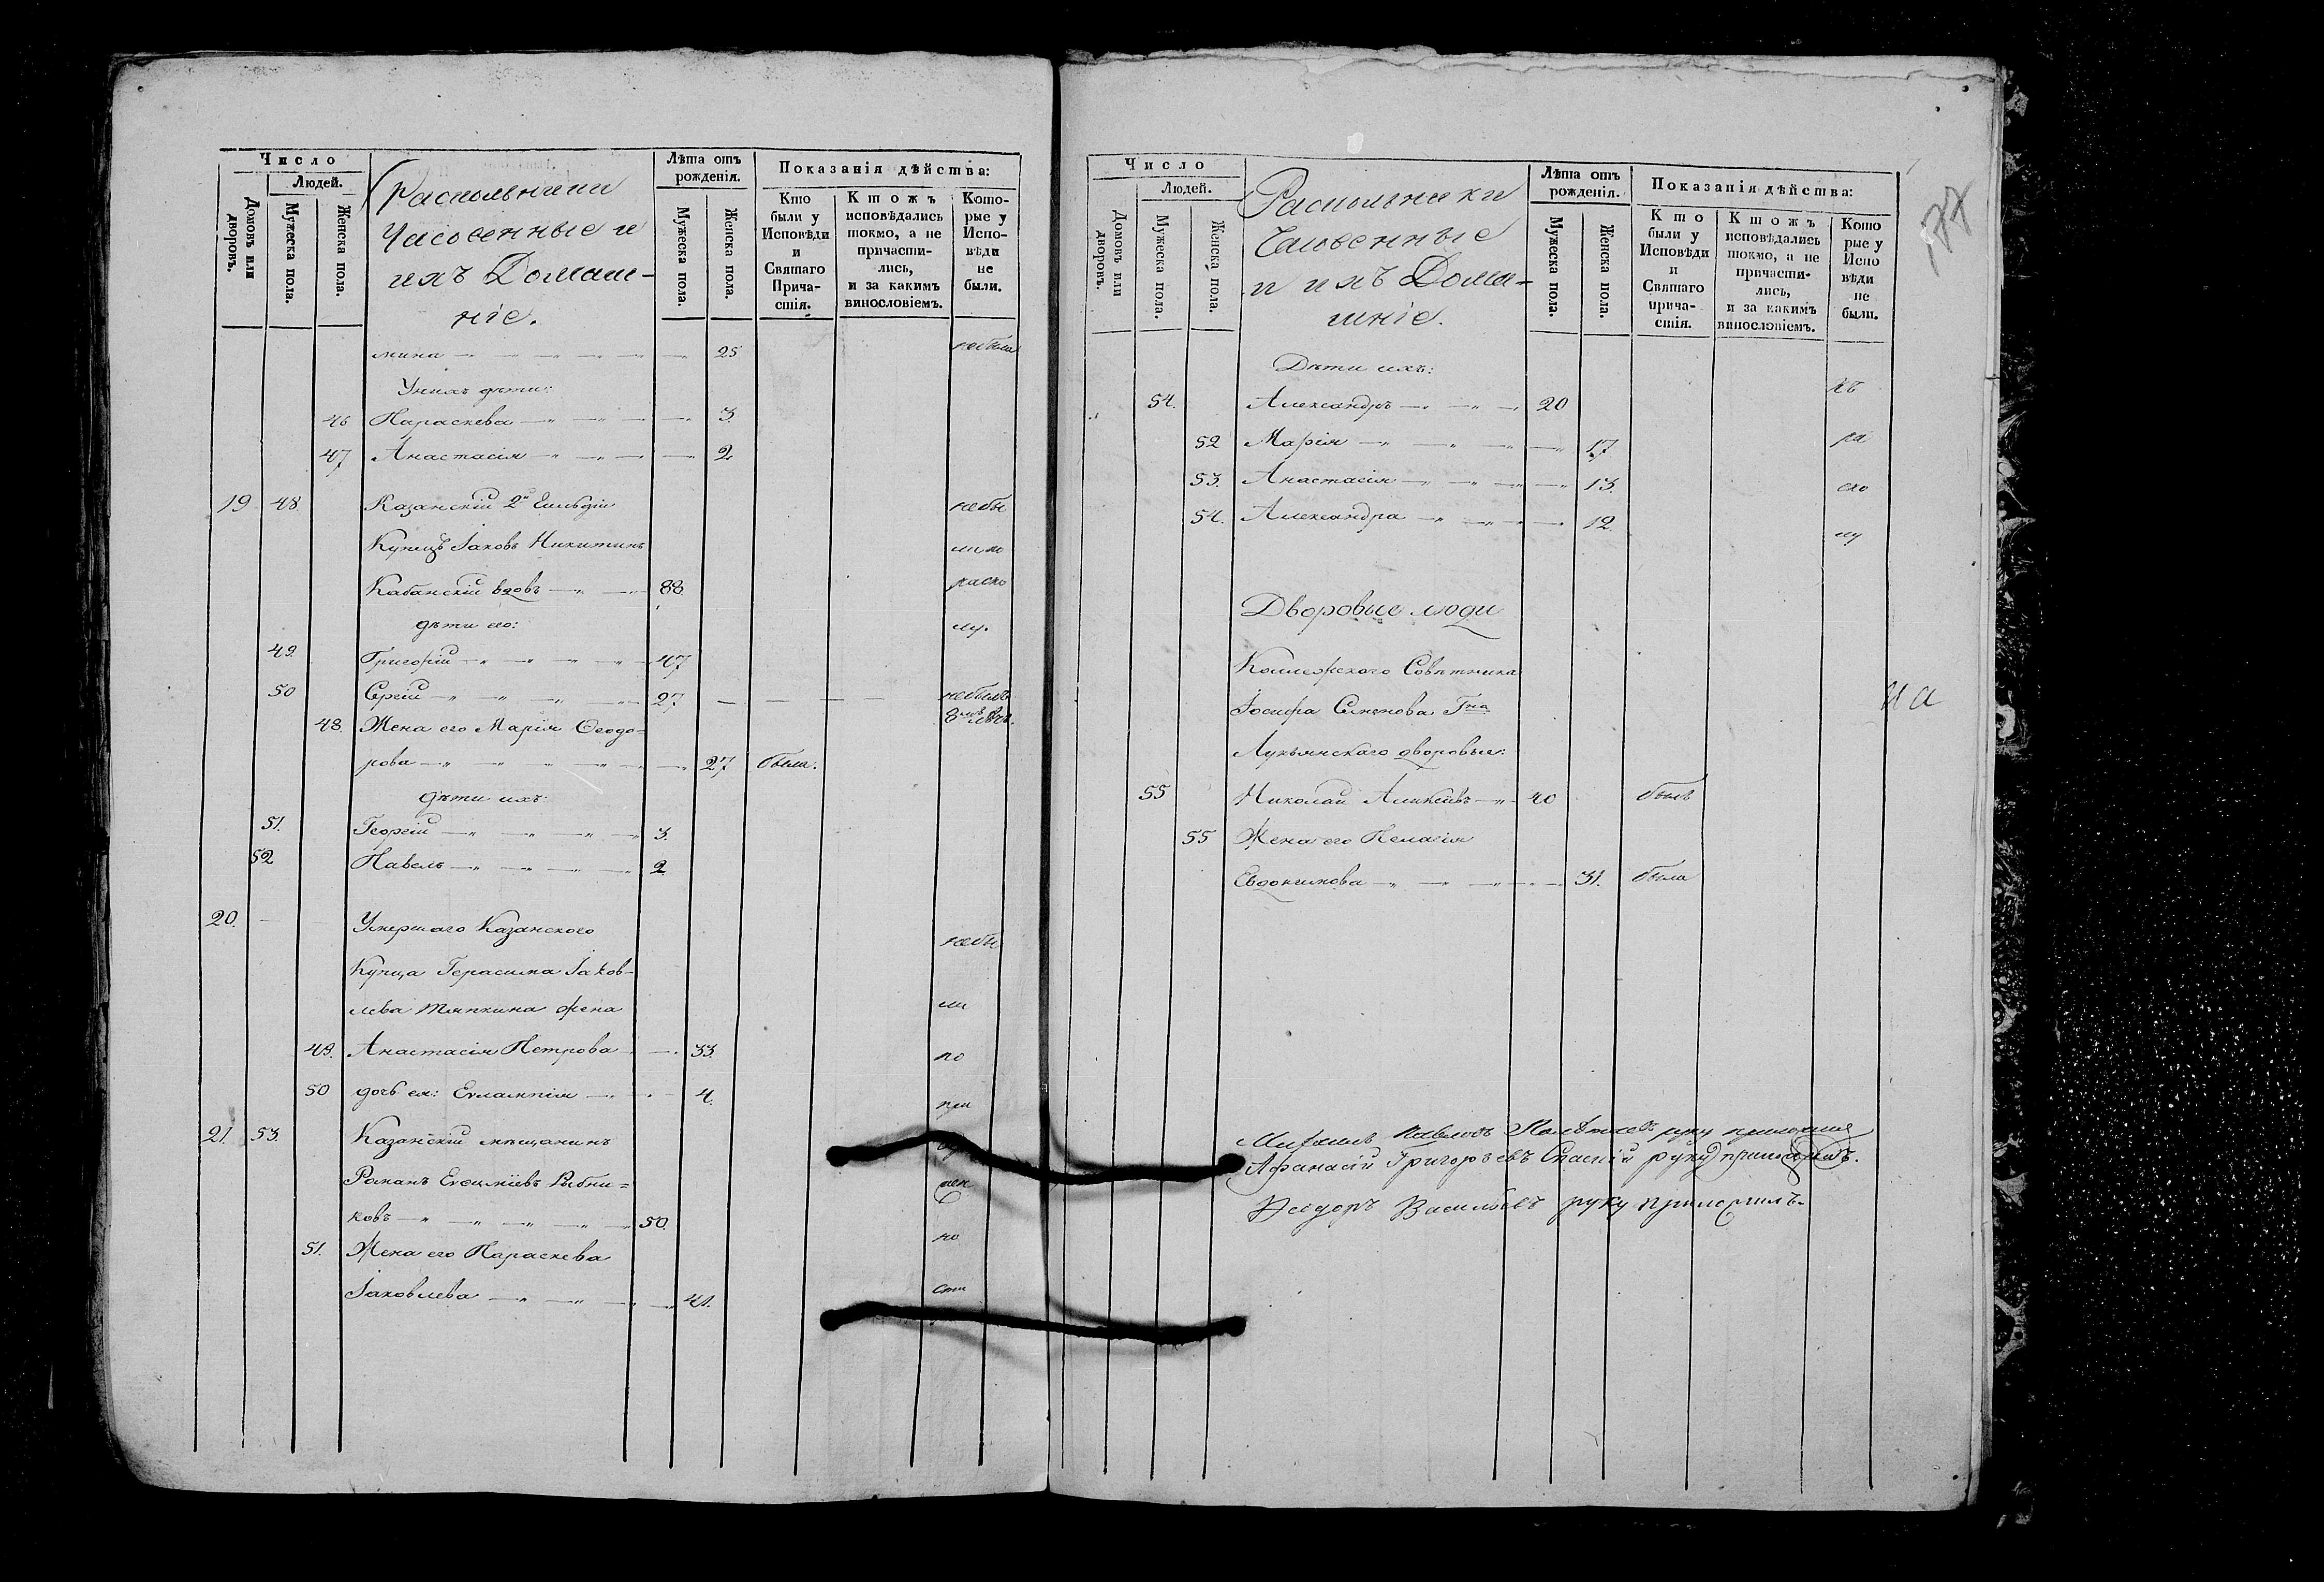 Число
Людей.
Домовъ или дворовъ.
Мужеска пола.
Женска пола.
Раскольники
Часовенные и
ихъ Домаш-
ніе.
Лѣта отъ рожденія.
Мужеска пола.
Женска пола.
Показанія дѣйства:
Кто были у Исповѣди и Святаго Прича-стія.
Ктожъ исповѣдались токмо, а не причасти-лись, и за какимъ винословіемъ.
Кото-рые у Испо-вѣди не были.
мина 25 небыла
У нихъ дѣти:
46 Параскева 3.
47 Анастасія 2
19 48 Казанскій 2й Гильдіи небы
Купецъ Іаковъ Никитинъ ли по
Кабанскій вдовъ 88 раско
дѣти его: лу.
49. Григорій 47
50 Сергій 27 небылъ
48. Жена его Марія Ѳеодо=
рова 27 была.
дѣти ихъ:
51. Георгій 3.
52 Павелъ 2
20. Умершаго Казанского
небы
Купца Герасима Іаков-
лева Тяпкина жена ли
49. Анастасія Петрова 33 по
50 дочь ея: Евлампія 4.
21. 53. Казанскій мѣщанинъ
Романъ Евѳиміевъ Рыбни=
ковъ 50.
51. Жена его Параскева но
Іаковлева 41. сти
Число
Людей.
Домовъ или дворовъ.
Мужеска пола.
Женска пола.
Раскольники
Часовенные
и ихъ Дома-
шніе.
Лѣта отъ рожденія.
Мужеска пола.
Женска пола.
Показанія дѣйства:
Кто были у Исповѣди и Святаго прича-стія.
Ктожъ исповѣдались токмо, а не причасти-лись, и за какимъ винословіемъ.
Кото рые у Испо вѣди не были.
177
Дѣти ихъ:
54. Александръ 20
52 Марія 17 ра
53. Анастасія 13. ско
54. Александра 12. лу
Дворовые люди
Коллежского Совѣтника
Іосифа Семенова Гна
на
Лукьянскаго дворовые:
55 Николай Алексіевъ 40 былъ
55 Жена его Пелагія
Евдокимова 31. была
Михаилъ Павловъ руку приложилъ
Афанасій Григорьевъ Спаскій руку приложилъ.
Ѳеодоръ Васильевъ руку приложилъ.